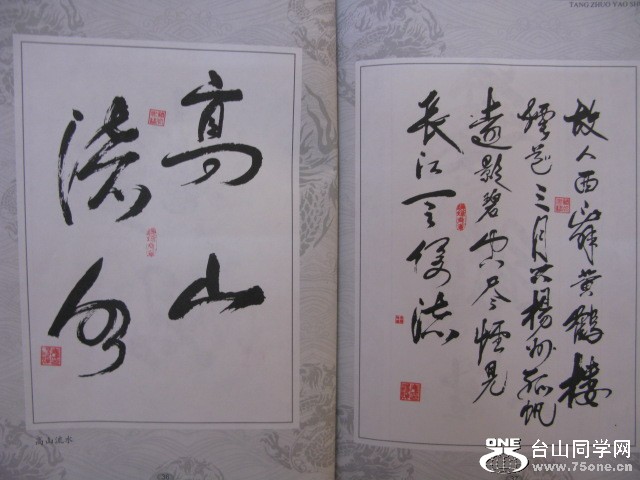 高山
流水
高山流水
TANG ZHUO YAO SH
故人西辭黄鶴樓
煙花三月下揚州孤帆
遠影碧空尽惟見
長江天際流
ONE
台山同学网
www.75one.cn